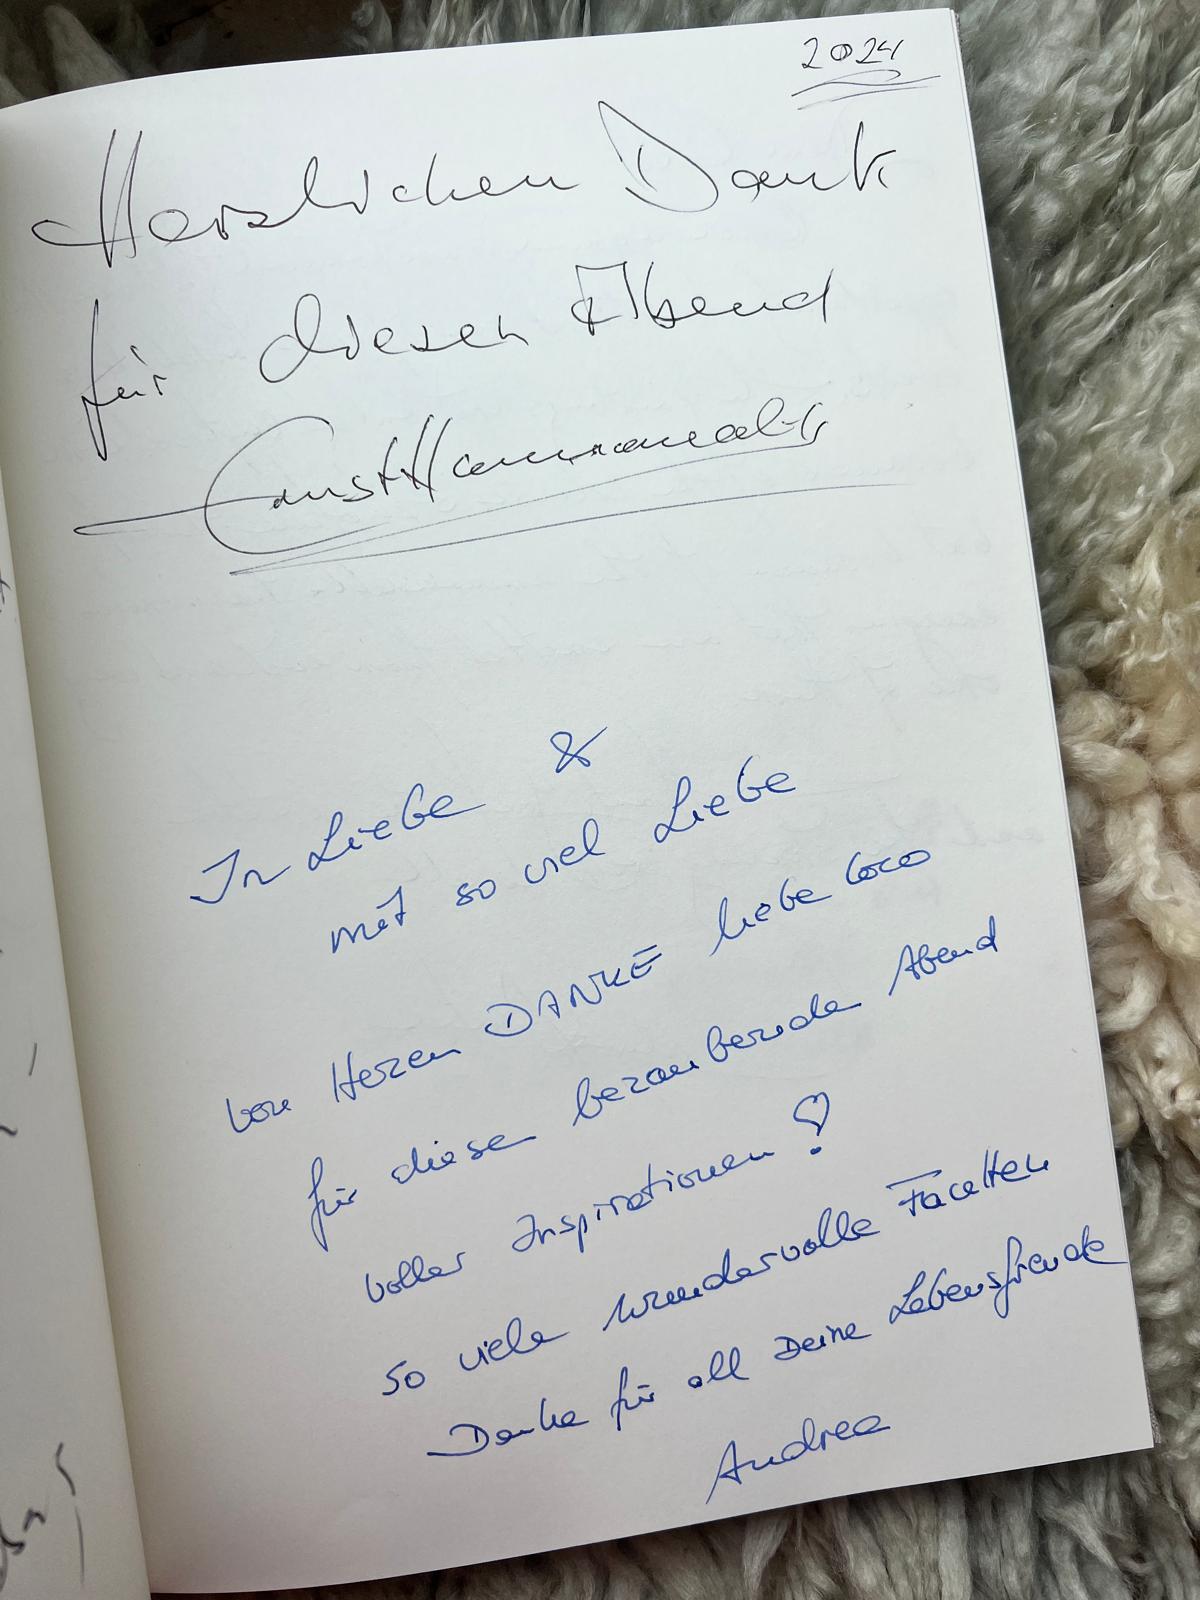 2024
Herzlichen Dank
für diesen Abend
Ernst
In Liebe &
mit so viel Liebe
von Herzen DANKE liebe Coco
für diesen bezaubernden Abend
voller Inspirationen
so viele wundervolle Facetten
Danke für all Deine Lebensfreude
Andrea